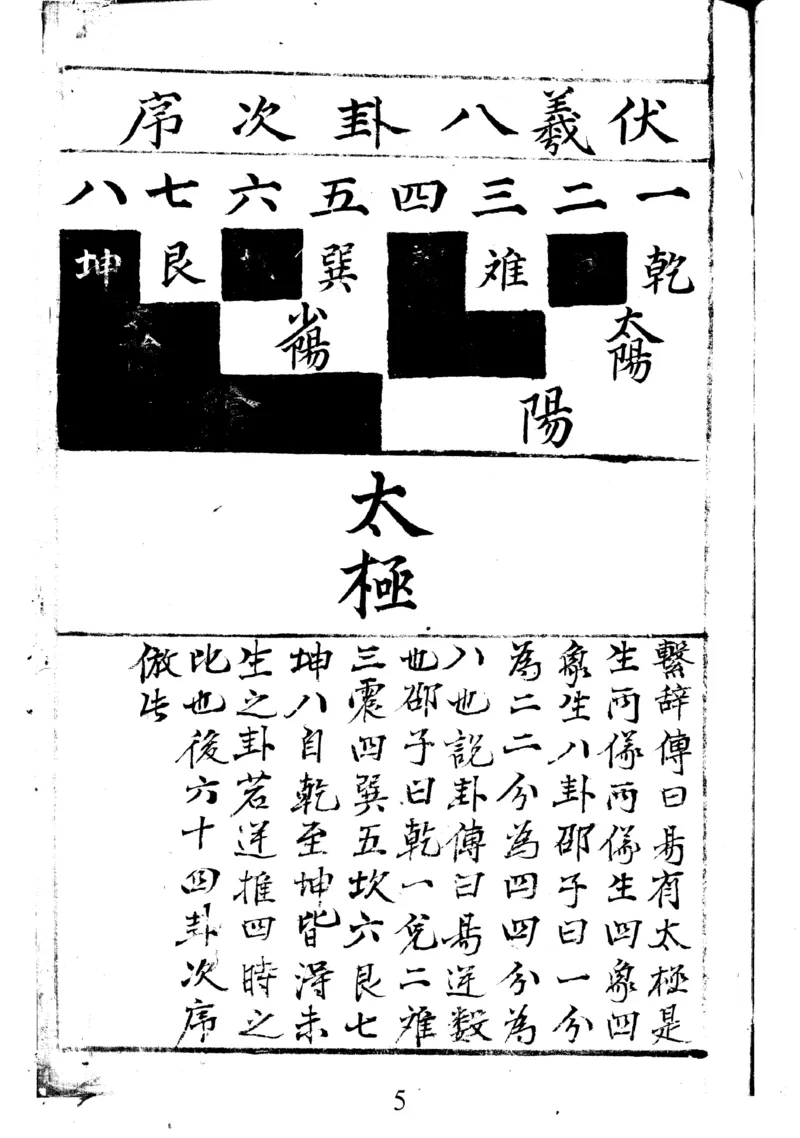 伏羲八卦次序
一二三四五六七八
乾 难 巽 艮 坤
太陽 少陽 陰
陽
太極
繫辞傳曰易有太極是
生兩儀兩儀生四象四
象生八卦邵子曰一分
為二二分為四四分為
八也説卦傳曰易逆数
也邵子曰乾一兊二难
三震四巽五坎六艮七
坤八自乾至坤皆淂未
生之卦若逆推四時之
比也後六十四卦次序
倣此
5